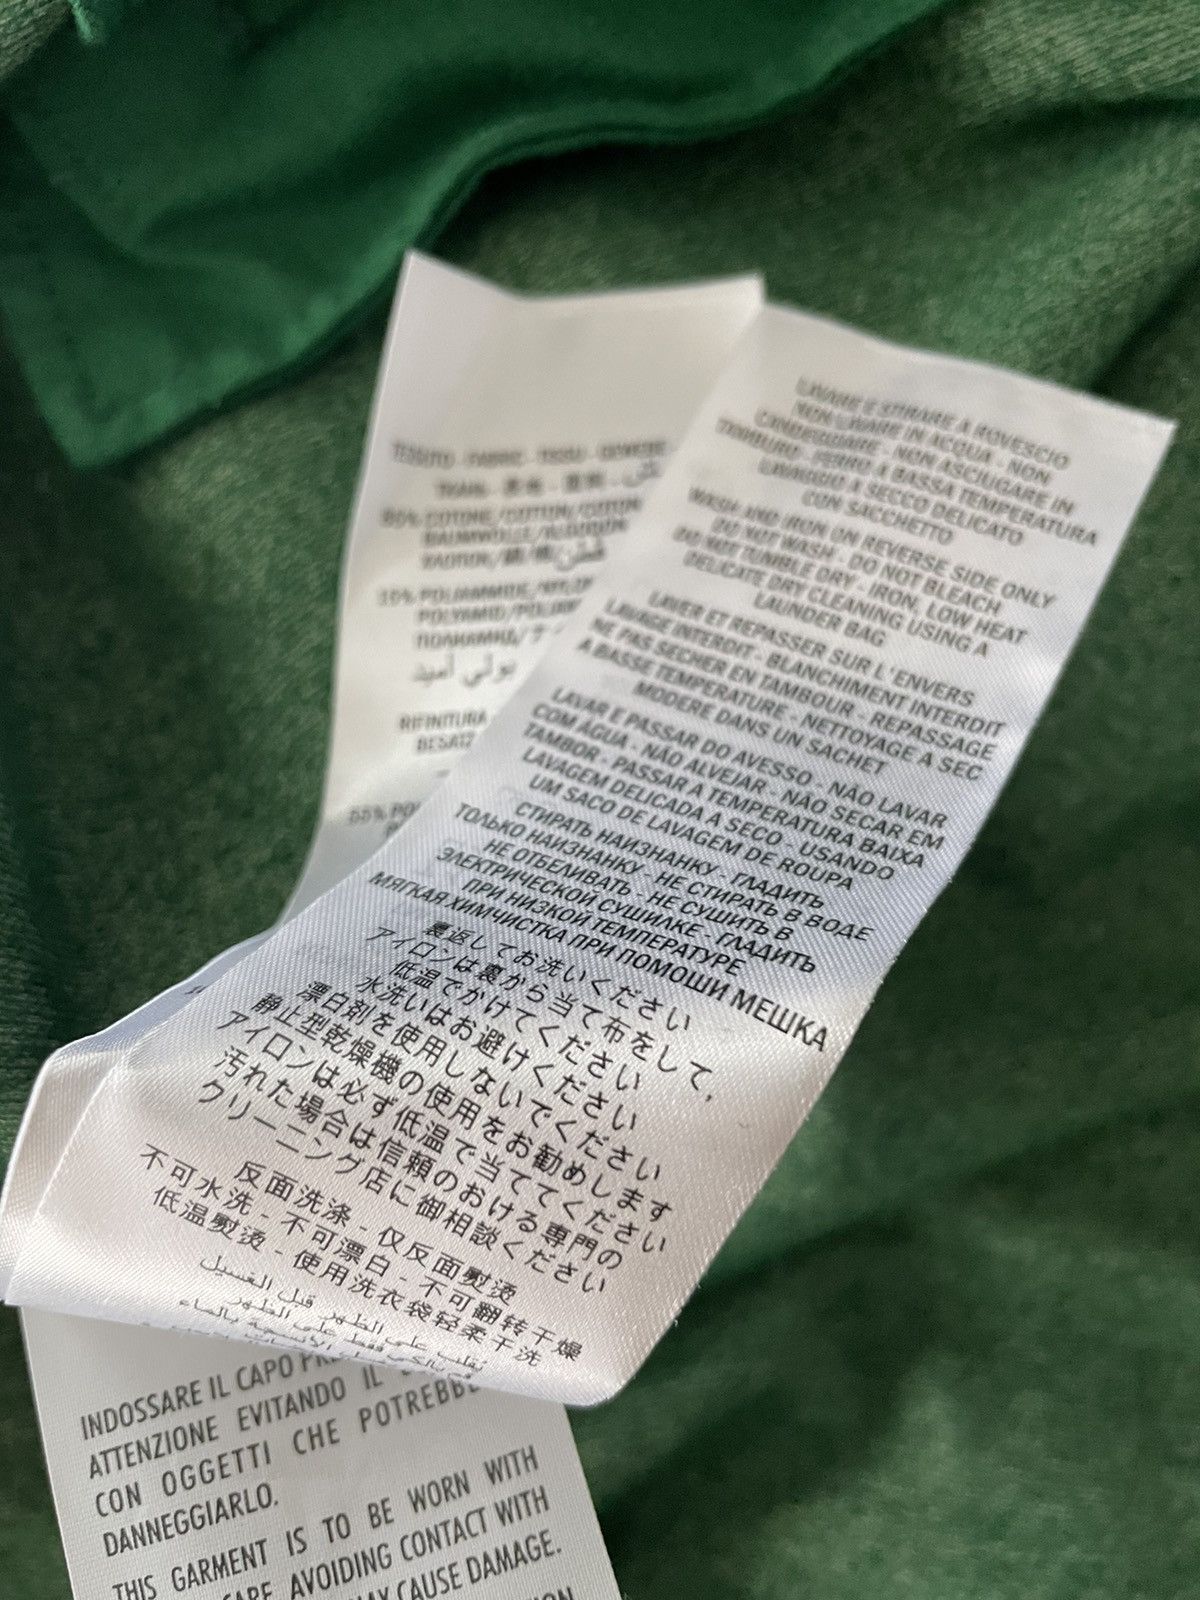 TESSUTO - FABRIC - TISSU - GEWEBE
ТКАНЬ
COTONE/COTTON/COTON
BAUMWOLLE/ALGODÓN
ХЛОПОК/綿/棉/قطن
POLIAMMIDE/NYLON
POLYAMID/
ПОЛИАМИД/
بولي أميد
RIFINITURA
LAVARE E STIRARE A ROVESCIO
NON LAVARE IN ACQUA - NON
CANDEGGIARE - NON ASCIUGARE IN
TAMBURO - FERRO A BASSA TEMPERATURA
LAVAGGIO A SECCO DELICATO
CON SACCHETTO
WASH AND IRON ON REVERSE SIDE ONLY
DO NOT WASH - DO NOT BLEACH
DO NOT TUMBLE DRY - IRON, LOW HEAT
DELICATE DRY CLEANING USING A
LAUNDER BAG
LAVER ET REPASSER SUR L'ENVERS
LAVAGE INTERDIT - BLANCHIMENT INTERDIT
NE PAS SECHER EN TAMBOUR - REPASSAGE
A BASSE TEMPERATURE - NETTOYAGE A SEC
MODERE DANS UN SACHET
LAVAR E PASSAR DO AVESSO - NÃO LAVAR
COM ÁGUA - NÃO ALVEJAR - NÃO SECAR EM
TAMBOR - PASSAR A TEMPERATURA BAIXA
LAVAGEM DELICADA A SECO - USANDO
UM SACO DE LAVAGEM DE ROUPA
СТИРАТЬ НАИЗНАНКУ - ГЛАДИТЬ
ТОЛЬКО НАИЗНАНКУ - НЕ СТИРАТЬ В ВОДЕ
НЕ ОТБЕЛИВАТЬ - НЕ СУШИТЬ В
ЭЛЕКТРИЧЕСКОЙ СУШИЛКЕ - ГЛАДИТЬ
ПРИ НИЗКОЙ ТЕМПЕРАТУРЕ
МЯГКАЯ ХИМЧИСТКА ПРИ ПОМОШИ МЕШКА
裏返してお洗いください
アイロンは裏から当て布をして、
低温でかけてください
水洗いはお避けください
漂白剤を使用しないでください
静止型乾燥機の使用をお勧めします
アイロンは必ず低温で当ててください
汚れた場合は信頼のおける専門の
クリーニング店に御相談ください
反面洗涤 - 仅反面熨烫
不可水洗 - 不可漂白 - 不可翻转干燥
低温熨烫 - 使用洗衣袋轻柔干洗
يقلب على الظهر قبل الغسيل
INDOSSARE IL CAPO
ATTENZIONE EVITANDO IL
CON OGGETTI CHE POTREBBE
DANNEGGIARLO.
THIS GARMENT IS TO BE WORN WITH
CARE AVOIDING CONTACT WITH
MAY CAUSE DAMAGE.